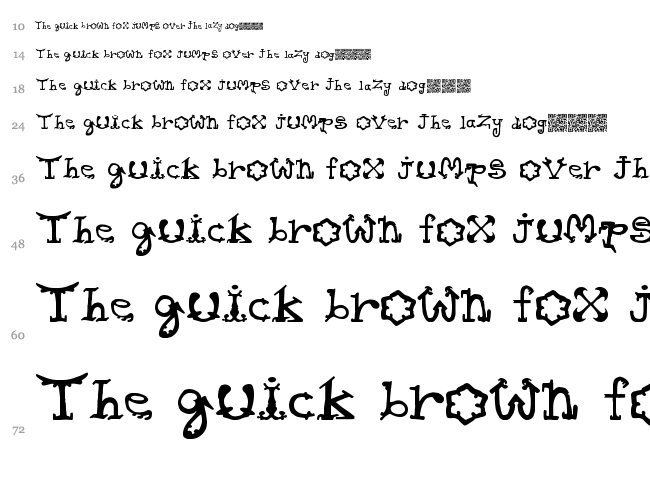 10 The quick brown fox jumps over the lazy dog
14 The quick brown fox jumps over the lazy dog
18 The quick brown fox jumps over the lazy dog
24 The quick brown fox jumps over the lazy dog
36 The quick brown fox jumps over th
48 The quick brown fox jumps
60 The quick brown fox j
72 The quick brown fo